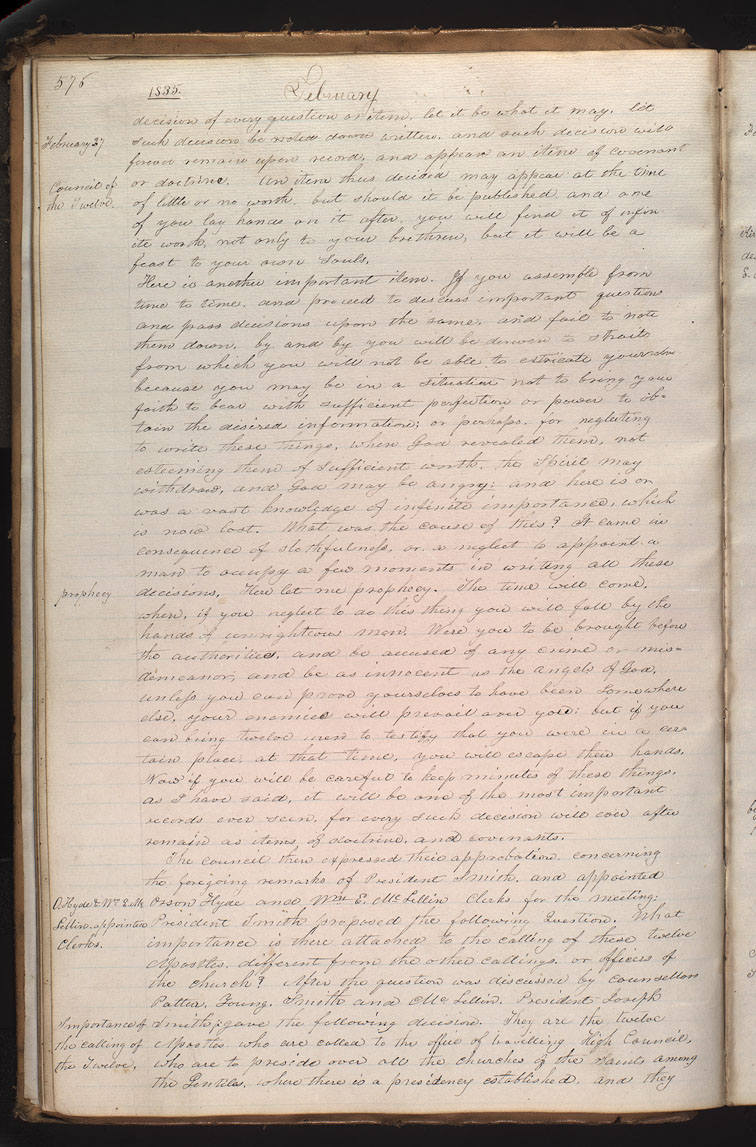 575
1835.
February
decision of every question or item, let it be what it may, let
February 27
such decision be noted down written, and such decision will
forever remain upon record, and appear an item of covenant
Council of
the Twelve.
or doctrine. An item thus decided may appear at the time
of little or no worth, but should it be published and one
of you lay hands on it after, you will find it of infin
ite worth, not only to your brethren, but it will be a
feast to your own Souls.
Here is another important item. If you assemble from
time to time, and proceed to discuss important questions
and pass decisions upon the same, and fail to note
them down, by and by you will be driven to straits
from which you will not be able to extricate yourselves
because you may be in a situation not to bring your
faith to bear with sufficient perfection or power to ob-
tain the desired information; or perhaps, for neglecting
to write these things, when God revealed them, not
esteeming them of sufficient worth, the Spirit may
withdraw, and God may be angry; and here is or
was a vast knowledge of infinite importance, which
is now lost. What was the cause of this? It came in
consequence of slothfulness, or a neglect to appoint a
man to occupy a few moments in writing all these
prophecy
decisions. Here let me prophecy. The time will come,
when, if you neglect to do this thing you will fall by the
hands of unrighteous men. Were you to be brought before
the authorities, and be accused of any crime or mis-
demeanor, and be as innocent as the angels of God,
unless you can prove yourselves to have been somewhere
else, your enemies will prevail over you: but if you
can bring twelve men to testify that you were in a cer-
tain place, at that time, you will escape their hands.
Now if you will be careful to keep minutes of these things,
as I have said, it will be one of the most important
records ever seen, for every such decision will ever after
remain as items of doctrine, and covenants.
The council then expressed their approbation, concerning
the foregoing remarks of President Smith, and appointed
O. Hyde & Wm E. Mc
Lellin appointed
Clerks.
Orson Hyde and Wm E. McLellin Clerks for the meeting;
President Smith proposed the following Question. What
importance is there attached to the calling of these twelve
Apostles, different from the other callings, or officers of
the church? After the question was discussed by Counsellors
Patten, Young, Smith and McLellin, President Joseph
Importance of
the calling of
the Twelve.
Smith jr gave the following decision. They are the twelve
Apostles who are called to the office of travelling High Council,
who are to preside over all the churches of the Saints among
the Gentiles, where there is a presidency established, and they